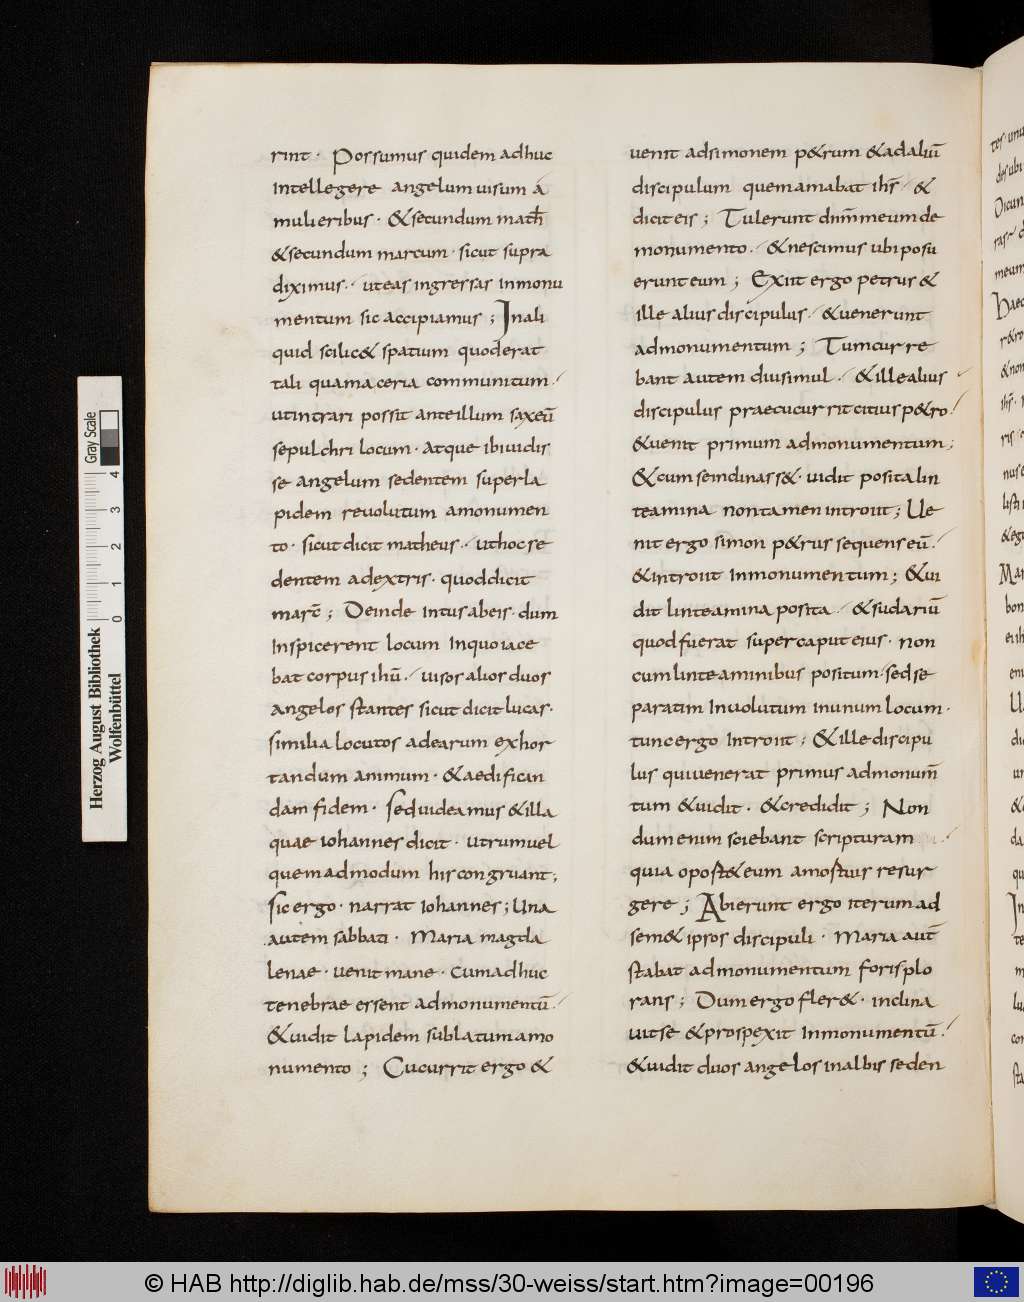 rint · Possumus quidem adhuc
intellegere angelum uisum a
mulieribus · & secundum math̅
& secundum marcum · sicut supra
diximus ·/ ut eas ingressas in monu
mentum sic accipiamus ; In ali
quid scilic& spatium quod erat
tali quam aceria communitum ·/
ut intrari possit ante illum saxeū
sepulchri locum · atque ibi uidis
se angelum sedentem super la
pidem reuolutum a monumen
to · sicut dicit matheus ·/ ut hoc se
dentem a dextris · quod dicit
marc̅ ; Deinde intus ab eis · dum
inspicerent locum in quo iace
bat corpus ihū ·/ uisos alios duos
angelos stantes sicut dicit lucas ·
similia locutos ad earum exhor
tandum animum · & aedifican
dam fidem · Sed uideamus & illa
quae iohannes dicit · utrum uel
quemadmodum his congruant ;
Sic ergo · narrat iohannes ; Una
autem sabbati · Maria magda
lenae · uenit mane · cum adhuc
tenebrae essent ad monumentū ·/
& uidit lapidem sublatum a mo
numento ; Cucurrit ergo &
uenit ad simonem p&rum & ad aliū
discipulum quem amabat ihs̅ ·/ &
dicit eis ; Tulerunt dnm̅ meum de
monumento ·/ & nescimus ubi posu
erunt eum ; Exiit ergo petrus &
ille alius discipulus ·/ & uenerunt
ad monumentum ; Tum curre
bant autem duisimul ·/ & ille alius
discipulus praecucurrit citius p&ro ·/
& uenit primum ad monumentum ;
& cum se inclinass& · uidit posita lin
teamina non tamen introiit ; Ue
nit ergo simon p&rus sequens eū ·/
& introiit in monumentum ; & ui
dit linteamina posita ·/ & sudariū
quod fuerat super caput eius · non
cum linteaminibus positum · sed se
paratim inuolutum in unum locum ·
tunc ergo introiit ; & ille discipu
lus qui uenerat primus ad monum̅
tum & uidit · & credidit ; Non
dum enim sciebant scripturam ·/
quia oport& eum a mortuis resur
gere ; Abierunt ergo iterum ad
sem& ipsos discipuli · Maria aut̅
stabat ad monumentum foris plo
rans ; Dum ergo fler& · inclina
uit se & prospexit in monumentū ·/
& uidit duos angelos in albis seden
Herzog August Bibliothek
Wolfenbüttel
Gray Scale
0 1 2 3 4
© HAB http://diglib.hab.de/mss/30-weiss/start.htm?image=00196